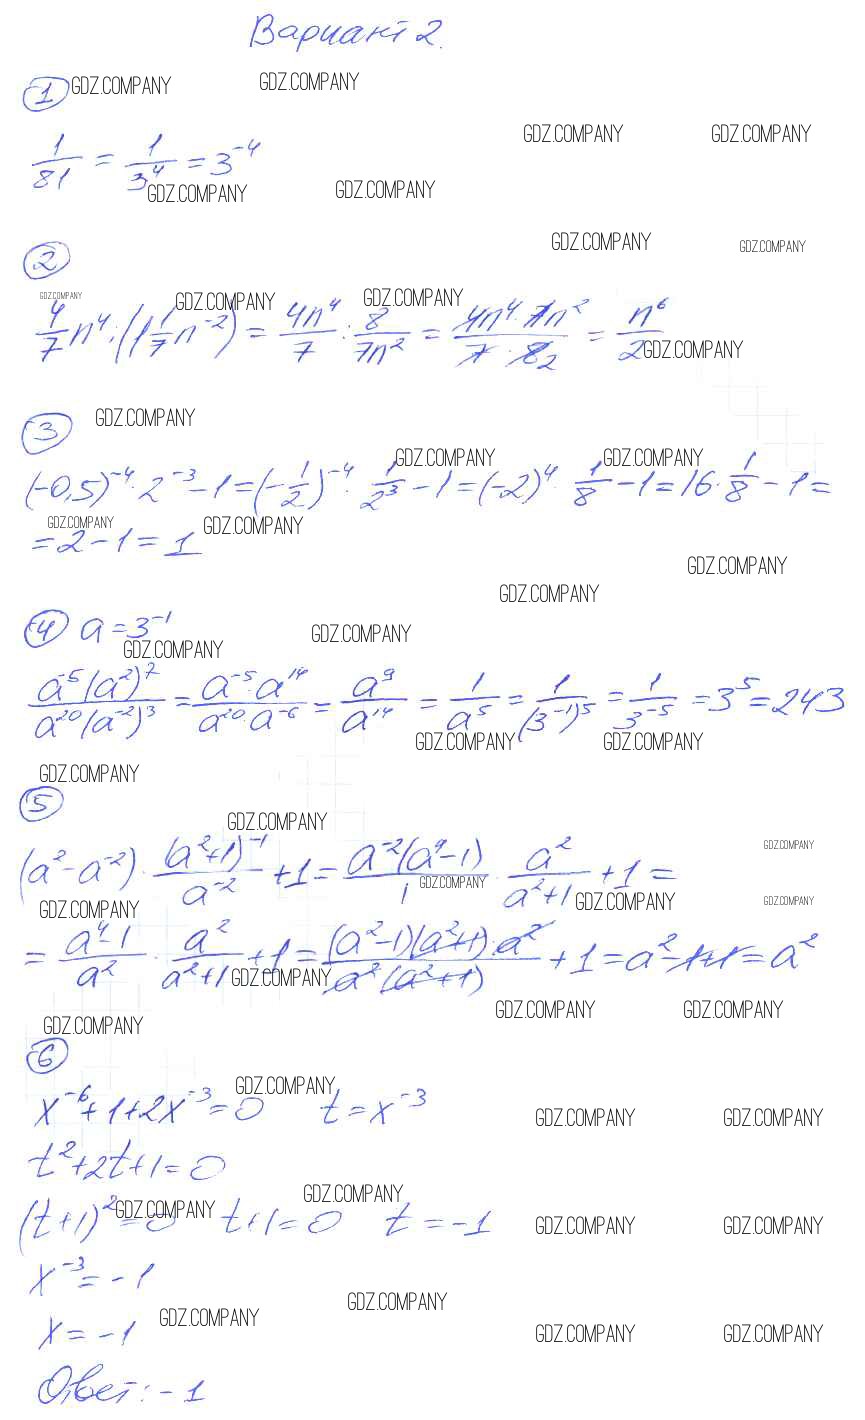 Вариант 2.
① GDZ.COMPANY GDZ.COMPANY
GDZ.COMPANY GDZ.COMPANY
1/81 = 1/3⁴ = 3⁻⁴
GDZ.COMPANY GDZ.COMPANY
GDZ.COMPANY GDZ.COMPANY
②
GDZ.COMPANY GDZ.COMPANY GDZ.COMPANY
4/7 n⁴ : (1 1/7 n⁻²) = 4n⁴/7 : 8/7n² = 4n⁴·7n²/7·8₂ = n⁶/2
GDZ.COMPANY
③ GDZ.COMPANY
GDZ.COMPANY GDZ.COMPANY
(-0,5)⁻⁴ · 2⁻³ - 1 = (-1/2)⁻⁴ · 1/2³ - 1 = (-2)⁴ · 1/8 - 1 = 16 · 1/8 - 1 =
GDZ.COMPANY GDZ.COMPANY
= 2 - 1 = 1
GDZ.COMPANY GDZ.COMPANY
④ a = 3⁻¹
GDZ.COMPANY GDZ.COMPANY
a⁻⁵(a²)⁷/a²⁰(a⁻²)³ = a⁻⁵·a¹⁴/a²⁰·a⁻⁶ = a⁹/a¹⁴ = 1/a⁵ = 1/(3⁻¹)⁵ = 1/3⁻⁵ = 3⁵ = 243
GDZ.COMPANY GDZ.COMPANY
GDZ.COMPANY
⑤
GDZ.COMPANY
GDZ.COMPANY
(a² - a⁻²) · (a²+1)⁻¹/a⁻² + 1 = a⁻²(a⁴-1)/1 · a²/a²+1 + 1 =
GDZ.COMPANY GDZ.COMPANY GDZ.COMPANY
GDZ.COMPANY
= a⁴-1/a² · a²/a²+1 + 1 = (a²-1)(a²+1)·a²/a²(a²+1) + 1 = a² - 1 + 1 = a²
GDZ.COMPANY
GDZ.COMPANY GDZ.COMPANY
GDZ.COMPANY
⑥
GDZ.COMPANY
x⁻⁶ + 1 + 2x⁻³ = 0 t = x⁻³
GDZ.COMPANY GDZ.COMPANY
t² + 2t + 1 = 0
GDZ.COMPANY
(t+1)² = 0 t + 1 = 0 t = -1
GDZ.COMPANY GDZ.COMPANY GDZ.COMPANY
x⁻³ = -1
GDZ.COMPANY GDZ.COMPANY
x = -1
GDZ.COMPANY GDZ.COMPANY
Ответ: -1